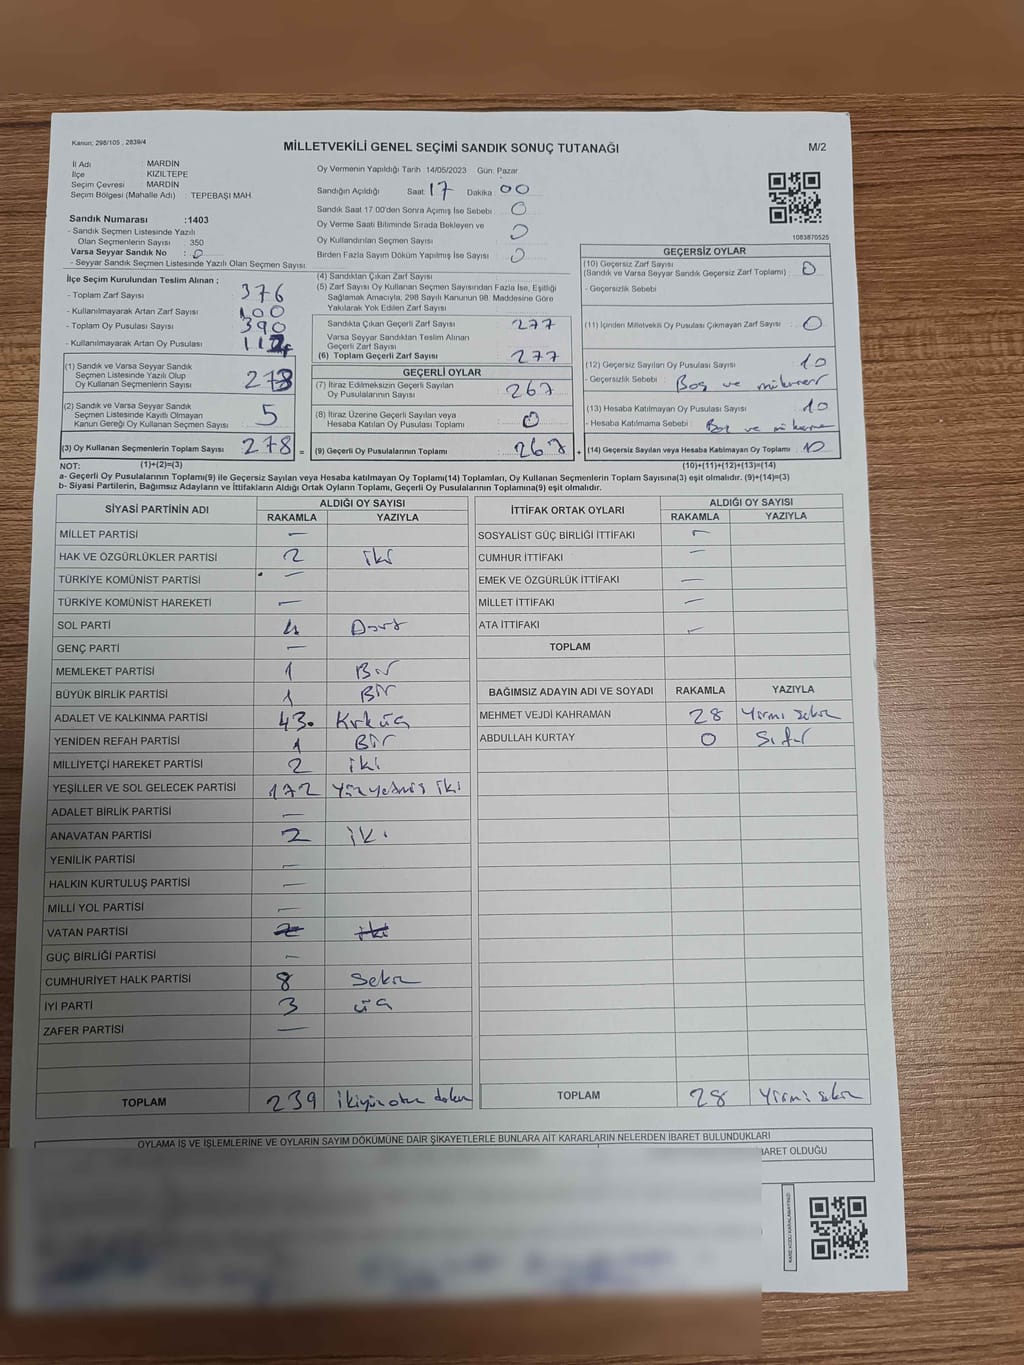 Kanun; 298/105 , 2839/4
MİLLETVEKİLİ GENEL SEÇİMİ SANDIK SONUÇ TUTANAĞI
M/2
İl Adı : MARDİN
İlçe KIZILTEPE
Seçim Çevresi : MARDİN
Seçim Bölgesi (Mahalle Adı) : TEPEBAŞI MAH
Sandık Numarası :1403
- Sandık Seçmen Listesinde Yazılı
Olan Seçmenlerin Sayısı : 350
Varsa Seyyar Sandık No : 0
- Seyyar Sandık Seçmen Listesinde Yazılı Olan Seçmen Sayısı:
Oy Vermenin Yapıldığı Tarih 14/05/2023 Gün: Pazar
Sandığın Açıldığı Saat 17 Dakika 00
Sandık Saat 17.00'den Sonra Açımış İse Sebebi : 0
Oy Verme Saati Bitiminde Sırada Bekleyen ve
Oy Kullandırılan Seçmen Sayısı : 0
Birden Fazla Sayım Döküm Yapılmış İse Sayısı : 0
1083870525
İlçe Seçim Kurulundan Teslim Alınan ;
- Toplam Zarf Sayısı : 376
- Kullanılmayarak Artan Zarf Sayısı : 100
- Toplam Oy Pusulası Sayısı : 390
- Kullanılmayarak Artan Oy Pusulası :
(1) Sandık ve Varsa Seyyar Sandık
Seçmen Listesinde Yazılı Olup
Oy Kullanan Seçmenlerin Sayısı :
(2) Sandık ve Varsa Seyyar Sandık
Seçmen Listesinde Kayıtlı Olmayan
Kanun Gereği Oy Kullanan Seçmen Sayısı : 5
(3) Oy Kullanan Seçmenlerin Toplam Sayısı : 278 =
(4) Sandıktan Çıkan Zarf Sayısı :
(5) Zarf Sayısı Oy Kullanan Seçmen Sayısından Fazla İse, Eşitliği
Sağlamak Amacıyla; 298 Sayılı Kanunun 98. Maddesine Göre
Yakılarak Yok Edilen Zarf Sayısı :
Sandıkta Çıkan Geçerli Zarf Sayısı : 277
Varsa Seyyar Sandıktan Teslim Alınan
Geçerli Zarf Sayısı :
(6) Toplam Geçerli Zarf Sayısı : 277
GEÇERLİ OYLAR
(7) İtiraz Edilmeksizin Geçerli Sayılan
Oy Pusulalarının Sayısı : 267
(8) İtiraz Üzerine Geçerli Sayılan veya
Hesaba Katılan Oy Pusulası Toplamı : 0
(9) Geçerli Oy Pusulalarının Toplamı : 267 +
GEÇERSİZ OYLAR
(10) Geçersiz Zarf Sayısı
(Sandık ve Varsa Seyyar Sandık Geçersiz Zarf Toplamı) : 0
- Geçersizlik Sebebi :
(11) İçinden Milletvekili Oy Pusulası Çıkmayan Zarf Sayısı : 0
(12) Geçersiz Sayılan Oy Pusulası Sayısı : 10
- Geçersizlik Sebebi : Boş ve
(13) Hesaba Katılmayan Oy Pusulası Sayısı : 10
- Hesaba Katılmama Sebebi : Boş ve
(14) Geçersiz Sayılan veya Hesaba Katılmayan Oy Toplamı : 10
NOT: (1)+(2)=(3) (10)+(11)+(12)+(13)=(14)
a- Geçerli Oy Pusulalarının Toplamı(9) ile Geçersiz Sayılan veya Hesaba katılmayan Oy Toplamı(14) Toplamları, Oy Kullanan Seçmenlerin Toplam Sayısına(3) eşit olmalıdır. (9)+(14)=(3)
b- Siyasi Partilerin, Bağımsız Adayların ve İttifakların Aldığı Ortak Oyların Toplamı, Geçerli Oy Pusulalarının Toplamına(9) eşit olmalıdır.
SİYASİ PARTİNİN ADI ALDIĞI OY SAYISI
RAKAMLA YAZIYLA
MİLLET PARTİSİ —
HAK VE ÖZGÜRLÜKLER PARTİSİ 2 iki
TÜRKİYE KOMÜNİST PARTİSİ —
TÜRKİYE KOMÜNİST HAREKETİ —
SOL PARTİ 4 Dört
GENÇ PARTİ —
MEMLEKET PARTİSİ 1 Bir
BÜYÜK BİRLİK PARTİSİ 1 Bir
ADALET VE KALKINMA PARTİSİ 43. Kırküç
YENİDEN REFAH PARTİSİ 1 Bir
MİLLİYETÇİ HAREKET PARTİSİ 2 iki
YEŞİLLER VE SOL GELECEK PARTİSİ 172 Yüzyetmiş iki
ADALET BİRLİK PARTİSİ —
ANAVATAN PARTİSİ 2 iki
YENİLİK PARTİSİ —
HALKIN KURTULUŞ PARTİSİ —
MİLLİ YOL PARTİSİ —
VATAN PARTİSİ 2 iki
GÜÇ BİRLİĞİ PARTİSİ —
CUMHURİYET HALK PARTİSİ 8 Sekiz
İYİ PARTİ 3 üç
ZAFER PARTİSİ —
TOPLAM 239 ikiyüz otuz dokuz
İTTİFAK ORTAK OYLARI ALDIĞI OY SAYISI
RAKAMLA YAZIYLA
SOSYALİST GÜÇ BİRLİĞİ İTTİFAKI —
CUMHUR İTTİFAKI —
EMEK VE ÖZGÜRLÜK İTTİFAKI —
MİLLET İTTİFAKI —
ATA İTTİFAKI —
TOPLAM
BAĞIMSIZ ADAYIN ADI VE SOYADI RAKAMLA YAZIYLA
MEHMET VEJDİ KAHRAMAN 28 Yirmi sekiz
ABDULLAH KURTAY 0 Sıfır
TOPLAM 28 Yirmi sekiz
OYLAMA İŞ VE İŞLEMLERİNE VE OYLARIN SAYIM DÖKÜMÜNE DAİR ŞİKAYETLERLE BUNLARA AİT KARARLARIN NELERDEN İBARET BULUNDUKLARI
BARET OLDUĞU
KARE KODU KARALAMAYINIZ!